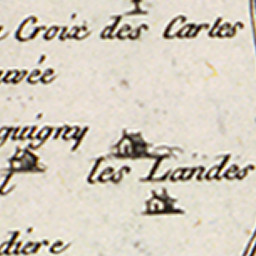 Croix des Cartes
uvée
guigny
les Landes
diere